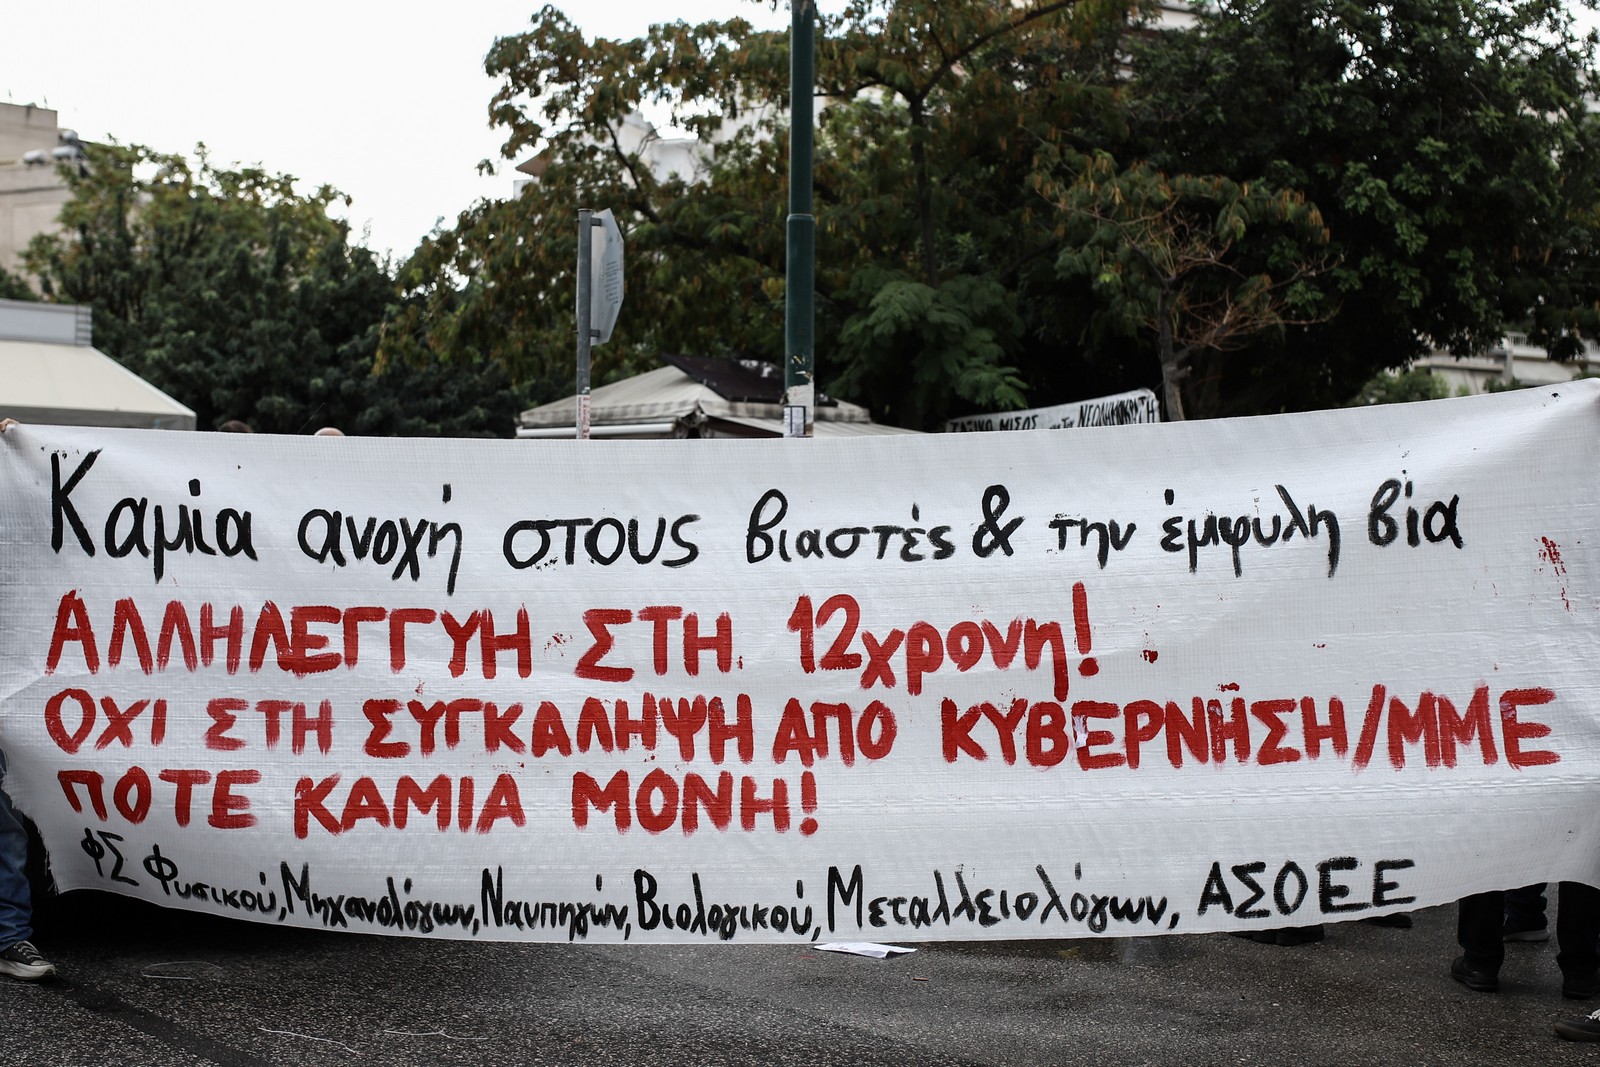 ΤΑΞΙΚΟ ΜΙΣΟΣ ΝΕΟΛ
Καμία ανοχή στους βιαστές & την έμφυλη βία
ΑΛΛΗΛΕΓΓΥΗ ΣΤΗ 12χρονη!
ΟΧΙ ΣΤΗ ΣΥΓΚΑΛΗΨΗ ΑΠΟ ΚΥΒΕΡΝΗΣΗ/ΜΜΕ
ΠΟΤΕ ΚΑΜΙΑ ΜΟΝΗ!
ΦΣ Φυσικού, Μηχανολόγων, Ναυπηγών, Βιολογικού, Μεταλλειολόγων, ΑΣΟΕΕ